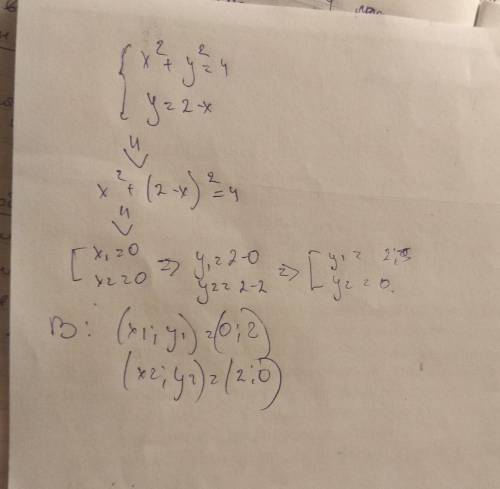 { x² + y² = 4
y = 2-x
⇓
x² + (2-x)² = 4
⇓
[ x₁ = 0 => y₁ = 2-0 => [ y₁ = 2;
x₂ = 0 y₂ = 2-2 y₂ = 0.
В: (x₁; y₁) = (0; 2)
(x₂; y₂) = (2; 0)